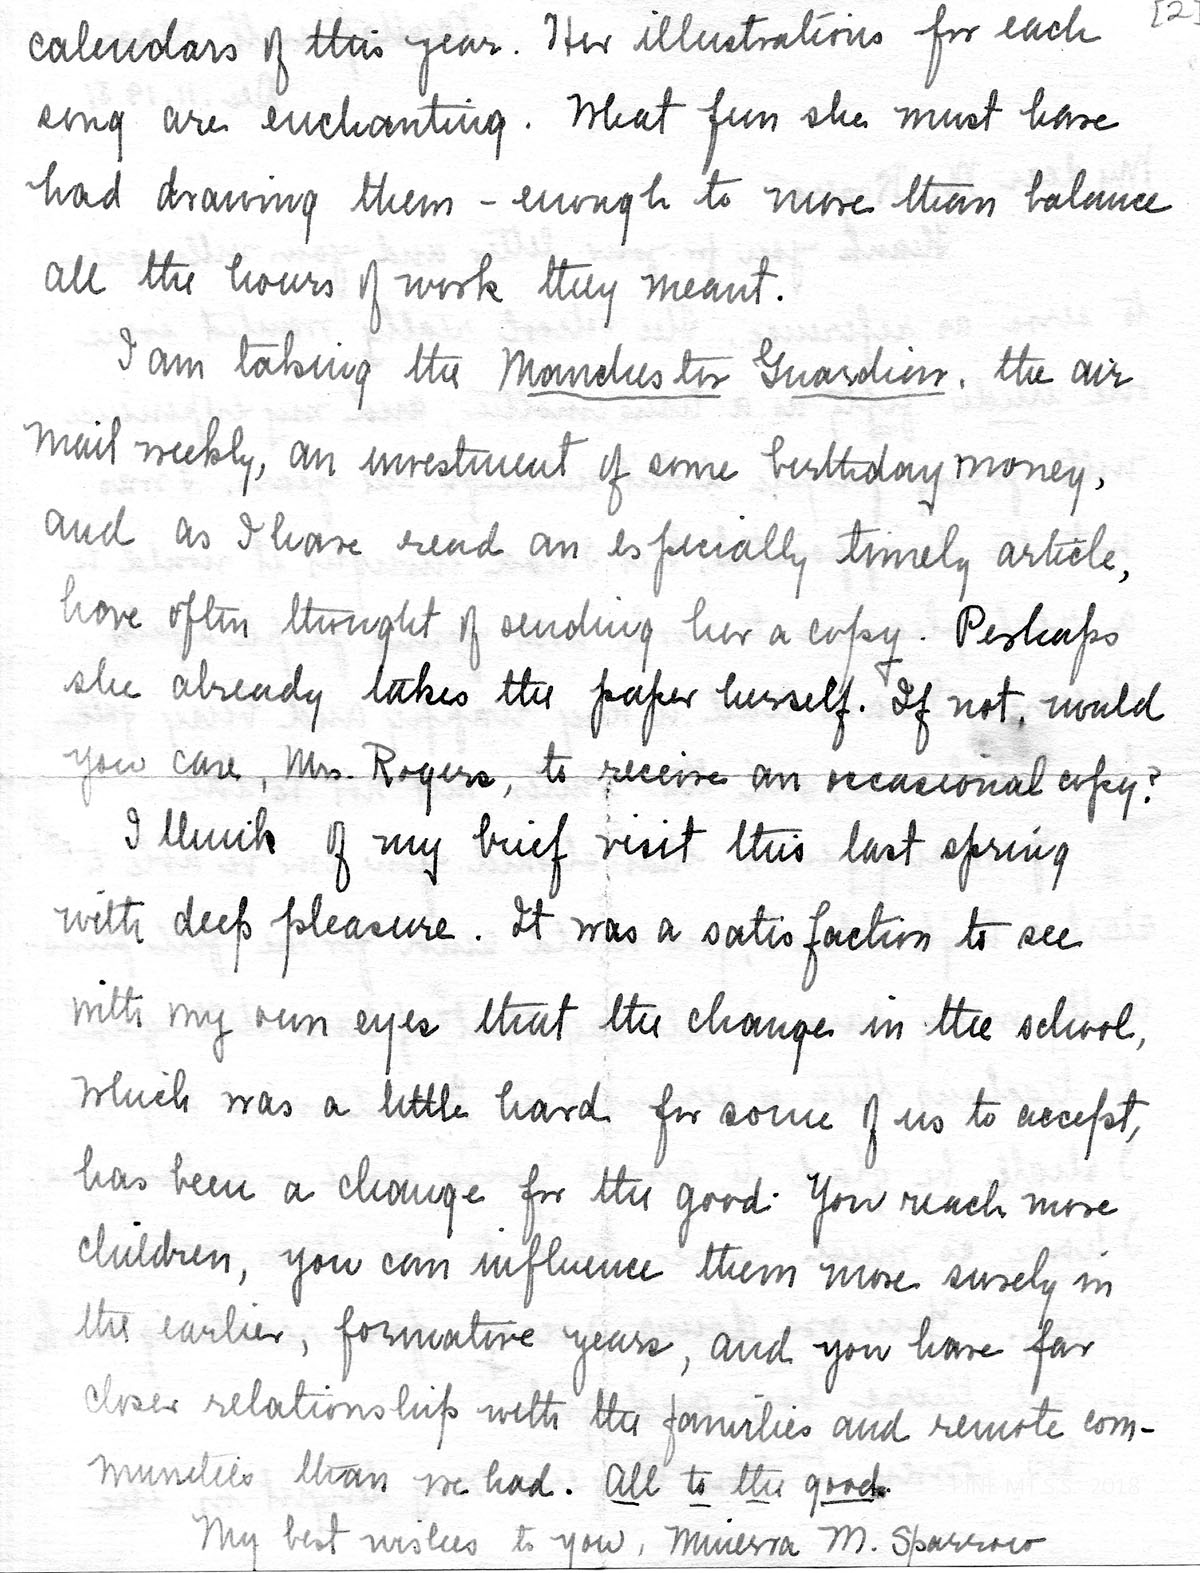 [2]
calendars of this year. Her illustrations for each
song are enchanting. What fun she must have
had drawing them - enough to more than balance
all the hours of work they meant.
I am taking the Manchester Guardian, the air
mail weekly, an investment of some birthday money,
and as I have read an especially timely article,
have often thought of sending her a copy. Perhaps
she already takes the paper herself. If not, would
you care, Mrs. Rogers, to receive an occasional copy?
I think of my brief visit this last spring
with deep pleasure. It was a satisfaction to see
with my own eyes that the change in the school,
which was a little hard for some of us to accept,
has been a change for the good. You reach more
children, you can influence them more surely in
the earlier, formative years, and you have far
closer relationship with the families and remote com-
munities than we had. All to the good.
My best wishes to you, Minerva M. Sparrow